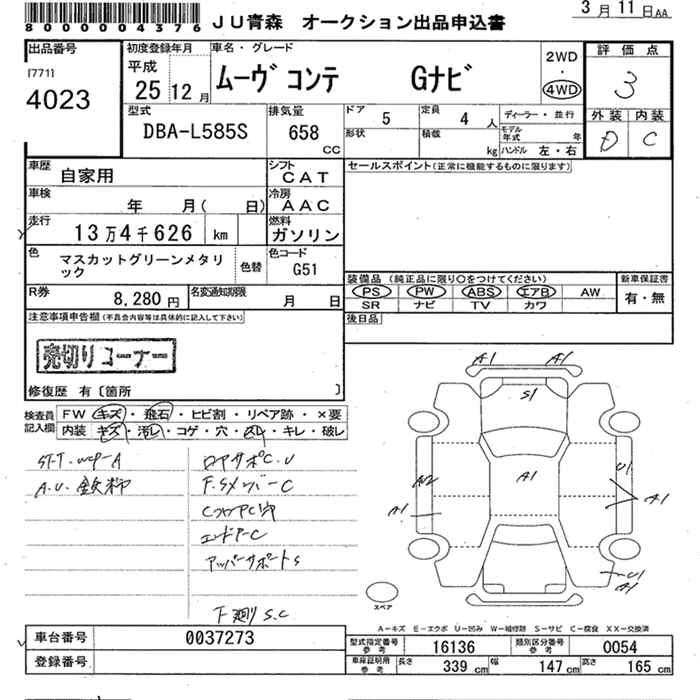 3月11日AA
8000004376
JU青森 オークション出品申込書
出品番号
[771]
4023
初度登録年月
平成
25 12月
車名・グレード
ムーヴ コンテ Gナビ
2WD
・
4WD
評価点
3
外装 内装
D C
型式
DBA-L585S
排気量
658
CC
ドア
5
定員
4人
形状
積載
kg
ディーラー・並行
モデル年式 年
ハンドル 左・右
車歴
自家用
シフト
CAT
車検
年 月( 日)
冷房
AAC
走行
13万4千626 km
燃料
ガソリン
色
マスカットグリーンメタリック
色替
色コード
G51
R券
8,280円
名変通知期限
月 日
セールスポイント(正常に機能するものに限ります)
装備品(純正品に限り○をつけてください)
PS PW ABS エアB AW
SR ナビ TV カワ
新車保証書
有・無
後日品
注意事項申告欄(不具合内容等は具体的に記入して下さい)
売切りコーナー
修復歴 有〔箇所 〕
検査員記入欄
FW キズ・飛石・ヒビ割・リペア跡・×要
内装 キズ・汚レ・コゲ・穴・スレ・キレ・破レ
ロアサポC.U
F.SメンバーC
エンドアーC
アッパーサポートS
F廻りS.C
A1 A1
S1
A1
A2
U1
A1
A1
U1
A1
スペア
A-キズ E-エクボ U-凹み W-補修跡 S-サビ C-腐食 XX-交換済
車台番号
0037273
登録番号
型式指定番号
参考
16136
類別区分番号
参考
0054
車庫証明用
参考
長さ 339cm
幅 147cm
高さ 165cm